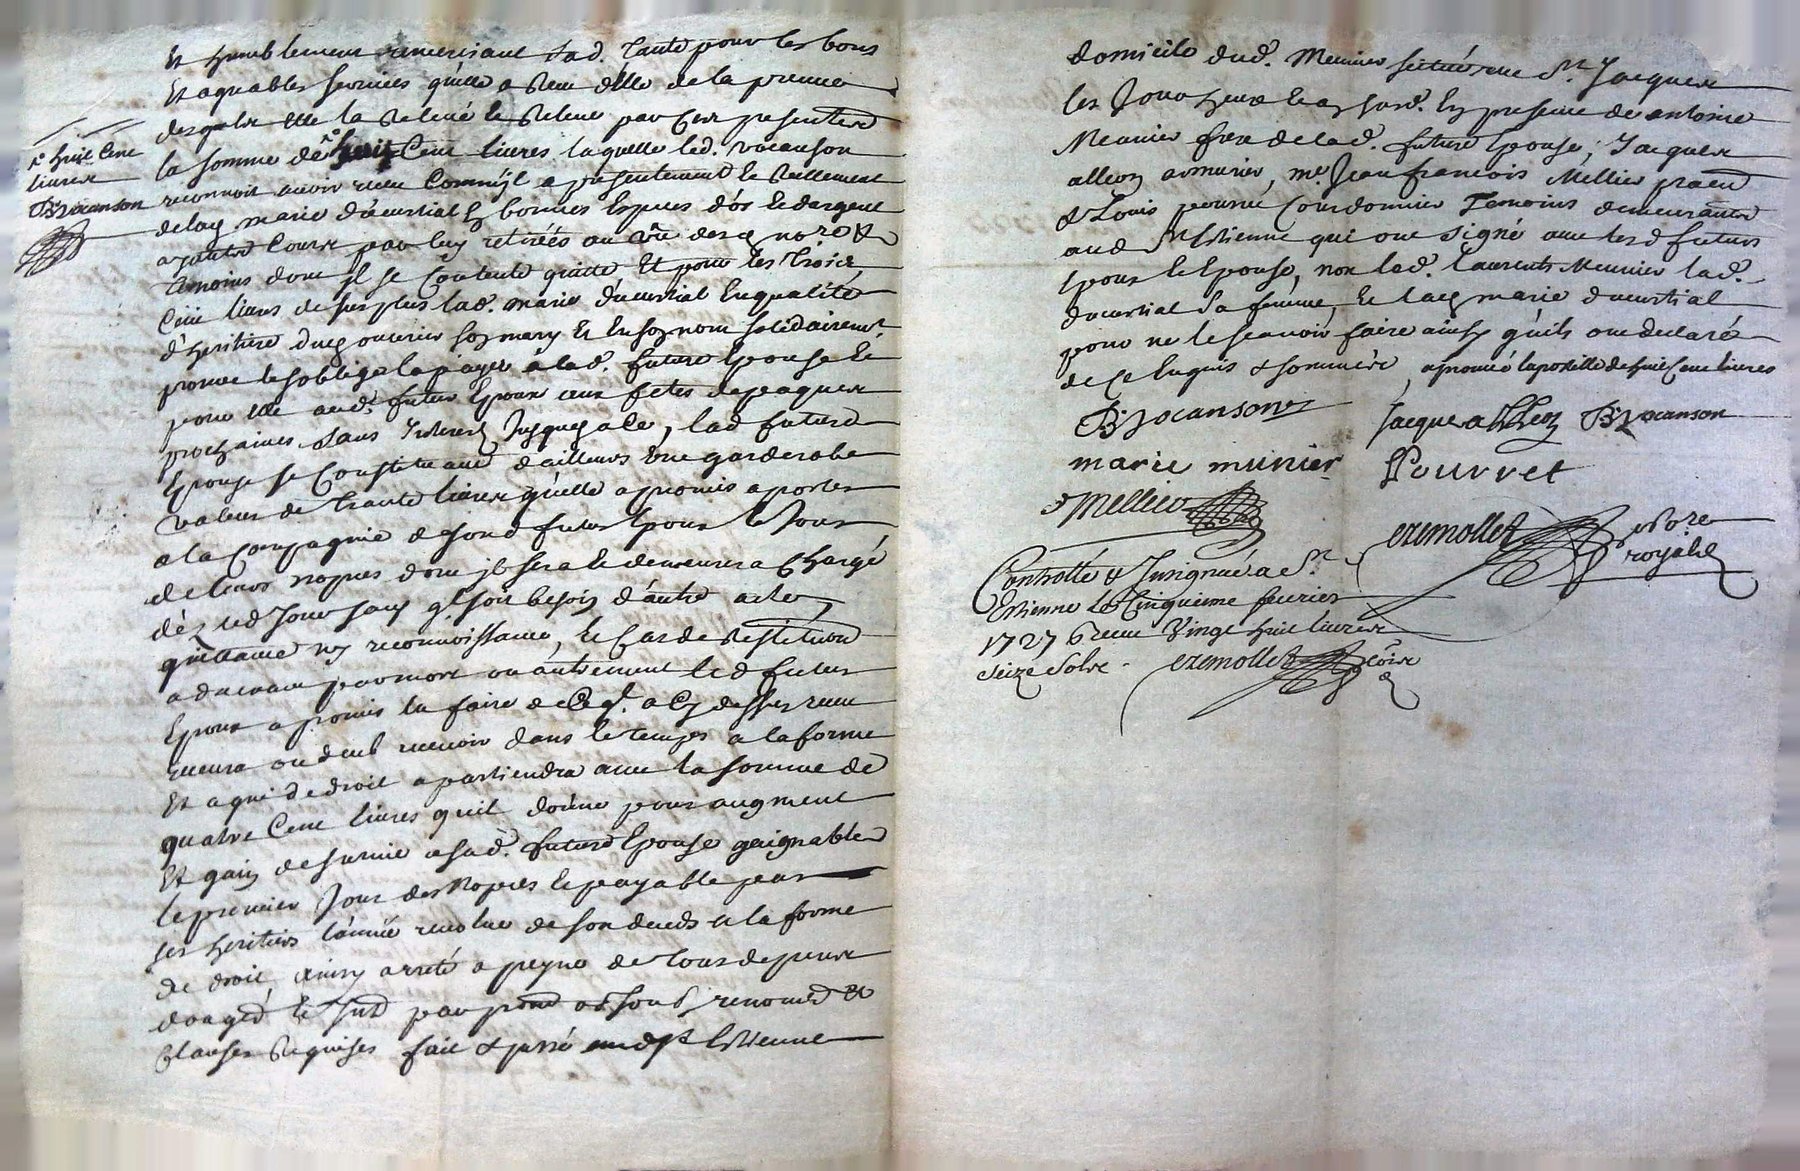 Et humblement remerciant sad. Tante pour les bons
Et agreables services qu'elle a Receu d'elle de la preuve
desquels elle la Relevé & Releve par Ces presentes
la somme de huit Cent livres laquelle led. vocanson
reconnoit avoir receu Comme a presentement Et Reellement
delad marie ducurtial En bonnes Espces d'or Et d'argent
ayant Cours par luy retirées au veu de
Temoins dont il se Contente quitte Et pour les Trois
Cent livres de surplus lad. marie ducurtial En qualité
d'heritiere dud son mary Et En son nom solidairemt
promet & s'oblige la payer à lad. future Epouse Et
pour elle aud. futur Epoux aux fetes de paques
prochaines sans Interest Jusques a ce, lad future
Epouse se Constituant d'ailleurs Une garderobe
valeur de Trante livres qu'elle a promis aporter
a la Compagnie de sond futur Epoux le Jour
de leurs nopces dont il sera & demeurera Chargé
dès led Jour sans qu'il soit besoin d'autre acte
quittance ny reconnoissance, Et Cas de Restitution
advenant par mort ou autrement led futur
Epoux a promis la faire de Ce qu'. a Cy dessus receu
recevra ou deub recevoir dans le temps a la forme
Et a qui de droit apartiendra avec la somme de
quatre Cent livres qu'il donne pour augment
Et gain de survie a sad. future Epouse gaignables
le premier Jour des Nopces Et payable par
ses heritiers l'année revolue de son deceds a la forme
de droit, ainsy arreté a peyne de Tous depens
domages Et par renoncé &
Clauses Requises fait & passé aud St Estienne
1° huit Cent
livres
B. Vocanson
domicile dud. Meunier scitué rue St. Jacques
les Jour heure En presence de antoine
Meunier frere de lad. future Epouse, Jacques
alleon armurier, me. Jean francois Mellier praen
& Louis pourret Courdonnier Temoins demeurants
aud St Estienne qui ont signé avec lesd futurs
Epoux Et Epouse, non lad. Laurents Meunier lad.
ducurtial sa femme, Et lad marie ducurtial
pour ne le scavoir faire ainsy qu'ils ont declaré
de Ce Enquis & sommés, aprouvé lapostille de huit Cent livres
B. Vocanson Jacques alleon B. Vocanson
marie munier Pourret
Mellier
ezemollet nore
royal
Controllé & Insignué a St.
Estienne le Cinquieme fevrier
1727 receu Vingt huit livres
seize Solse. ezemollet